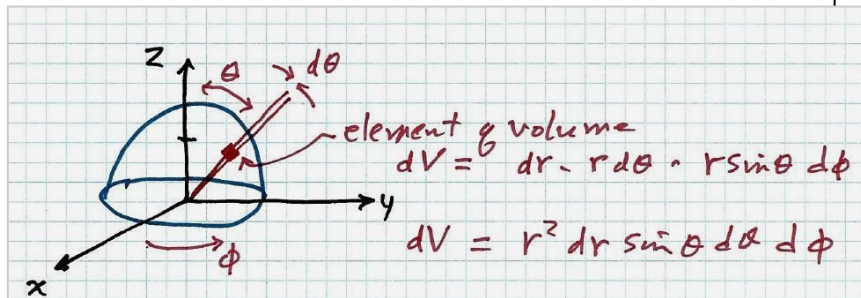 z
θ
dθ
element of volume
dV = dr · r dθ · r sinθ dφ
y
dV = r² dr sinθ dθ dφ
φ
x